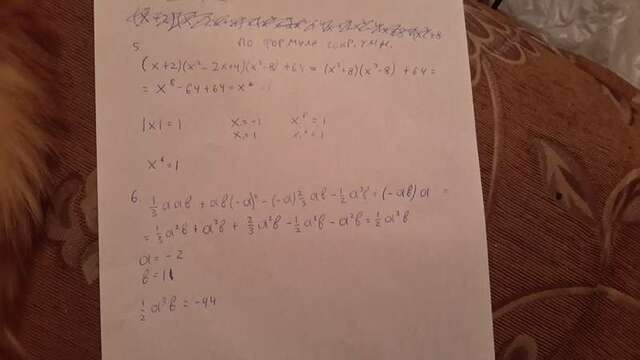 по формулам сокр. умн.
5.
(x+2)(x²-2x+4)(x³-8)+64 = (x³+8)(x³-8)+64=
= x⁶-64+64=x⁶
|x|=1 x=-1 x⁶=1
x=1 x⁶=1
x⁶=1
6. 1/3 aab + ab(-a) - (-a) 2/3 ab - 1/2 a²b + (-ab)a =
= 1/3 a²b + a²b + 2/3 a²b - 1/2 a²b - a²b = 1/2 a²b
a=-2
b=11
1/2 a³b = -44